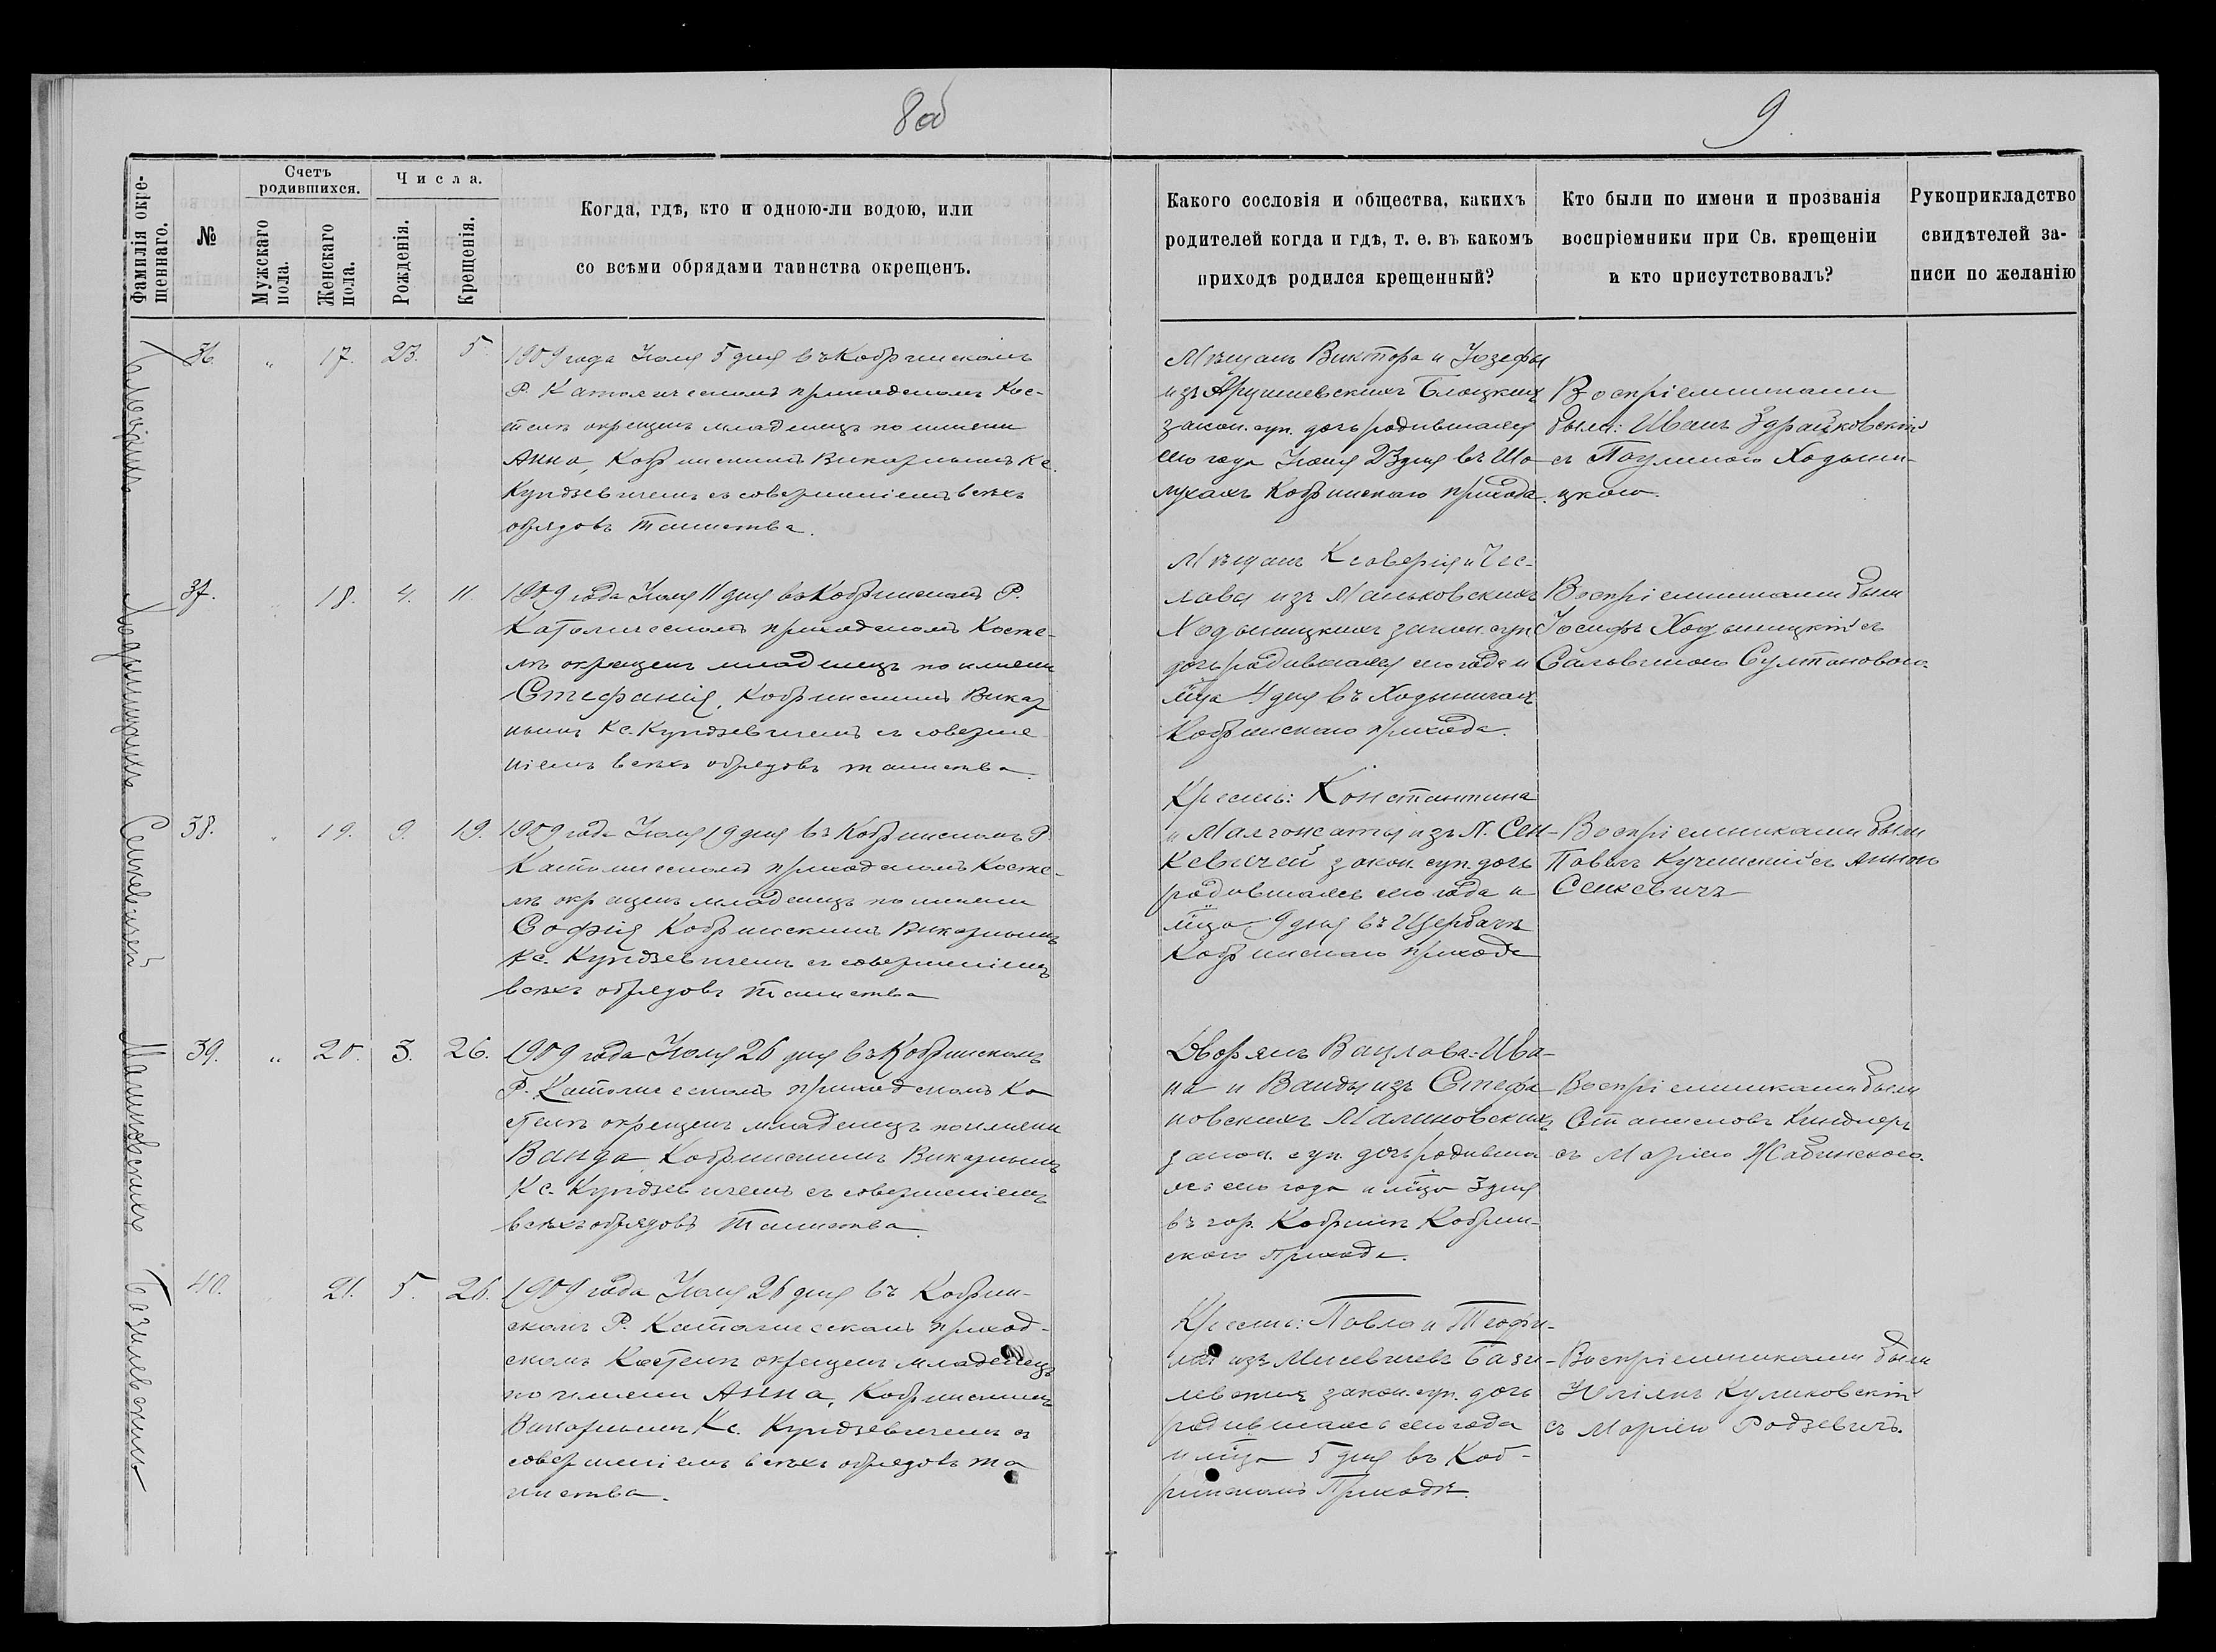 8об
9.
Фамилія окре-
щеннаго.
№
Счетъ
родившихся.
Мужскаго
пола.
Женскаго
пола.
Числа.
Рожденія.
Крещенія.
Когда, гдѣ, кто и одною-ли водою, или
со всѣми обрядами таинства окрещенъ.
Какого сословія и общества, какихъ
родителей когда и гдѣ, т. е. въ какомъ
приходѣ родился крещенный?
Кто были по имени и прозванія
воспріемники при Св. крещеніи
и кто присутствовалъ?
Рукоприкладство
свидѣтелей за-
писи по желанію
36. " 17. 23. 5.
1909 года Іюля 5 дня въ Кобринскомъ
Р. Католическомъ приходскомъ Кос-
телѣ окрещенъ младенецъ по имени
Анна, Кобринскимъ Викарнымъ Кс.
Кундзевичемъ съ совершеніемъ всѣхъ
обрядовъ Таинства.
Мѣщанъ Виктора и Іозефы
изъ Блоцкихъ
закон. суп. дочь родившаяся
сего года Іюня 23 дня въ
Кобринскаго прихода.
Воспріемниками
были: Иванъ
съ Паулиною Ходыни-
цкою.
Ходыницкихъ
37. 18. 4. 11.
1909 года Іюля 11 дня въ Кобринскомъ Р.
Католическомъ приходскомъ Косте-
лѣ окрещенъ младенецъ по имени
Стефанія, Кобринскимъ Викар
нымъ Кс. Кундзевичемъ съ соверше
ніемъ всѣхъ обрядовъ таинства.
Мѣщанъ Ксаверія и Чес-
лавы изъ Маньковскихъ
Ходыницкихъ закон. суп
дочь родившаяся сего года и
мѣца 4 дня въ Ходыничахъ
Кобринскаго прихода.
Воспріемниками были
Іосифъ Ходыницкій съ
Сальвиною Султановою.
Сенкевичей
38. " 19. 9. 19.
1909 года Іюля 19 дня въ Кобринскомъ Р.
Католическомъ приходскомъ Косте-
лѣ окрещенъ младенецъ по имени
Софія Кобринскимъ Викарнымъ
Кс. Кундзевичемъ съ совершеніемъ
всѣхъ обрядовъ Таинства
Кресть: Константина
и Малгожаты изъ N. Сен-
кевичей закон. суп. дочь
родившаясь сего года и
мѣца 9 дня въ
Кобринскаго прихода
Воспріемниками были
Павелъ съ Анною
Сенкевичъ
Малиновскихъ
39. " 20. 3. 26.
1909 года Іюля 26 дня въ Кобринскомъ
Р. Католическомъ приходскомъ Ко
стелѣ окрещенъ младенецъ по имени
Ванда Кобринскимъ Викарнымъ
Кс. Кундзевичемъ съ совершеніемъ
всѣхъ обрядовъ Таинства.
Дворянъ Вацлава-Ива-
на и Ванды изъ Стефа
новскихъ Малиновскихъ
закон. суп. дочь родивша
яся сего года и мѣца 3 дня
въ гор. Кобринѣ Кобрин-
скаго прихода.
Воспріемниками были
Станиславъ Киндлеръ
съ Маріею Жабинскою.
Базилевскихъ
40. 21. 5. 26.
1909 года Іюля 26 дня въ Кобрин-
скомъ Р. Католическомъ приход-
скомъ Костелѣ окрещенъ младенецъ
по имени Анна, Кобринскимъ
Викарнымъ Кс. Кундзевичемъ съ
совершеніемъ всѣхъ обрядовъ та
инства.
Кресть: Павла и Теофи-
лы изъ Базы-
левскихъ закон. суп. дочь
родившаясь сего года
и мѣца 5 дня въ Коб-
ринскомъ Приходѣ.
Воспріемниками были
Юліянъ Куликовскій
съ Маріею Родзевичъ.